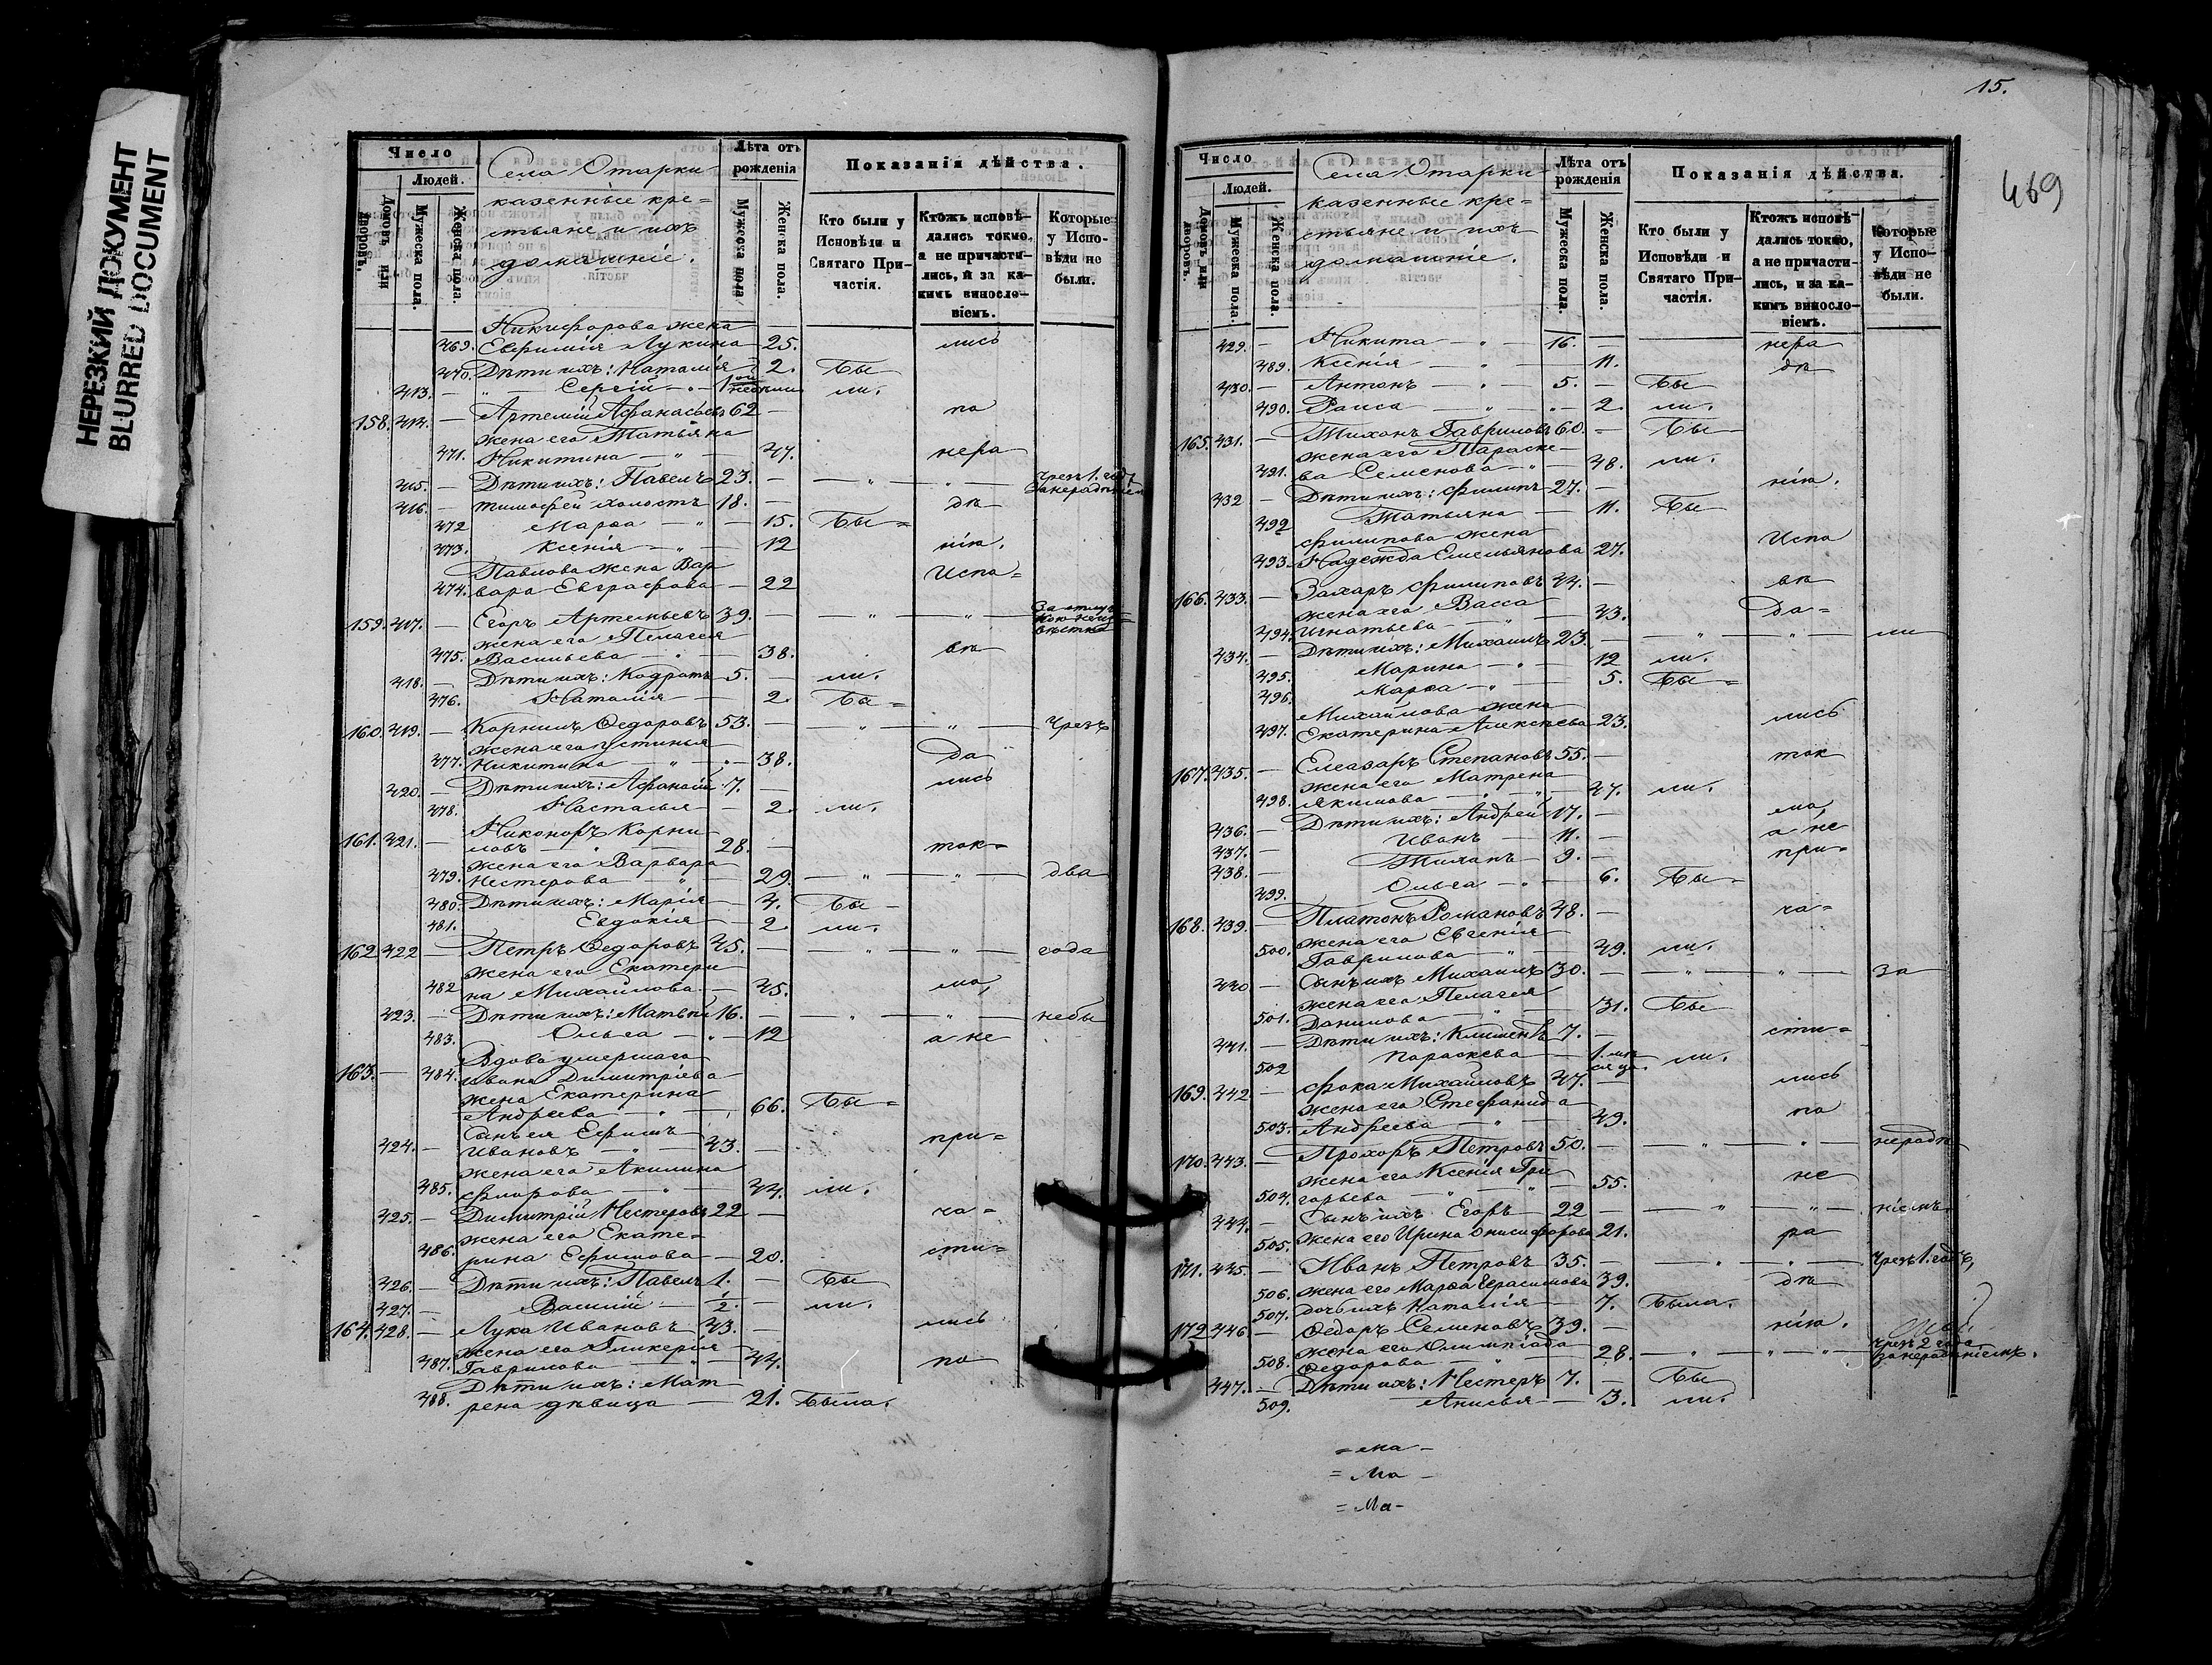 НЕРЕЗКИЙ ДОКУМЕНТ
BLURRED DOCUMENT
Число
Людей.
Домовъ или дворовъ.
Мужеска пола.
Женска пола.
Села Отарки
казенные кре=
стьяне и ихъ
домашніе.
Лѣта отъ рожденія
Мужеска пола
Женска пола.
Показанія дѣйства.
Кто были у Исповѣди и Святаго Причастія.
Ктожъ исповѣдались токмо, а не причастились, и за какимъ винословіемъ.
Которые у Исповѣди не были.
Никифорова жена
469. Евфимія Лукина 25. лись
470. Дѣти ихъ: Наталія 2. Бы
413. — " Сергій — " ли.
158. 414. — Артемій Афанасьевъ 62 — по
жена его Татьяна
471. Никитина — " — 47. нера
415. — Дѣти ихъ: Павелъ 23. — " — " — Чрезъ 1. годъ занерадѣніемъ
416. — Тимофей холостъ 18. — дѣ
472 Марѳа — " — 15. Бы=
473. Ксенія — " — 12 нію.
Павлова жена Вар
474. вара Евграфова — 22 Испо=
159. 417. — Егоръ Артемьевъ 39. — " — " — За отлуч
жена его Пелагея
475. Васильева — " — 38. вѣ
418. — Дѣти ихъ: Кодратъ 5. — ли.
476. Наталія — 2. Бы=
160. 419. — Корнилъ Ѳедоровъ 53. — " — " — Чрезъ
жена его Устинья
477. Никитина — " — 38. да
420. — Дѣти ихъ: Афанасій 7. — лись
478. Настасья — 2. ли.
161. 421. — Никоноръ Корни
ловъ — " — 28. — ток=
жена его Варвара
479. Нестерова — " — 29. — " — " — два
480. Дѣти ихъ: Марія 4. Бы—
481. Евдокія — 2 ли.
162. 422 — Петръ Ѳедоровъ 45. — " — " — года
жена его Екатери
482 на Михайлова — 45. мо,
423. — Дѣти ихъ: Матвѣй 16. — " — " — небы
483. Ольга — " — 12 а не
Вдова умершаго
163. — 484. Ивана Димитріева
жена Екатерина
Андреева — " — 66. Бы=
Сынъ ея Ефимъ
424. — Ивановъ — " — 43. — при=
жена его Акилина
485. Флорова — " — 44. ли.
425. — Димитрій Нестеровъ 22 — ча=
жена его Екате=
486. рина Ефимова — 20. сти=
426. — Дѣти ихъ: Павелъ 1. — Бы
427. — Василій — 1/2. — ли.
164. 428. — Лука Ивановъ 43. — лись
жена его Гликерія
487. Гаврилова — " — 44. по
Дѣти ихъ: Мат
488. рена дѣвица — 21. Была.
15.
469
Число
Людей.
Домовъ или дворовъ.
Мужеска пола.
Женска пола.
Села Отарки
казенные кре=
стьяне и ихъ
домашніе.
Лѣта отъ рожденія
Мужеска пола.
Женска пола.
Показанія дѣйства.
Кто были у Исповѣди и Святаго Причастія.
Ктожъ исповѣдались токмо, а не причастились, и за какимъ винословіемъ.
Которые у Исповѣди не были.
429. — Никита — " — 16. — нера
489. Ксенія — " — 11. дѣ
430. — Антонъ — " — 5. — Бы
490. Раиса — " — 2. ли.
165. 431. — Тихонъ Гавриловъ 60. — Бы
жена его Параске=
491. ва Семенова — " — 48. ли.
432 — Дѣти ихъ: Филипъ 27. — нію.
492 Татьяна — 11. Бы
Филипова жена
493. Надежда Емельянова 27. Испо
166. 433. — Захаръ Филиповъ 44. — вѣ
жена его Васса
494. Игнатьева — " — 43. да=
434. — Дѣти ихъ: Михаилъ 23. — " — " — ли
495. Марина — " — 12 ли.
496. Марѳа — " — 5. Бы=
Михайлова жена
497. Екатерина Алексѣева 23. лись
167. 435. — Елеазаръ Степановъ 55. — ток
жена его Матрена
498. Якимова — " — 47. ли.
436. — Дѣти ихъ: Андрей 17. — мо,
437. — Иванъ — 11. — а не
438. — Тихонъ — 9. — при=
499. Ольга — " — 6. Бы=
168. 439. — Платонъ Романовъ 48. — ча=
жена его Евгенія
500. Гаврилова — " — 49. ли.
440 — Сынъ ихъ Михаилъ 30. — " — " — за
жена его Пелагея
501. Данилова — " — 31. Бы
441. — Дѣти ихъ: Климентъ 7. — сти=
502 Параскева — 1. мѣ сяца. ли.
169. 442 — Фока Михайловъ 47. — лись
жена его Стефанида
503. Андреева — " — 49. по
170. 443. — Прохоръ Петровъ 50. — " — " — нерадѣ
жена его Ксенія Гри
504. горьева — " — 55. не
444. — Сынъ ихъ Егоръ — 22 — " — " — ніемъ
505. жена его Ирина Онисифорова 21. ра
171. 445. — Иванъ Петровъ 35. — " — " — Чрезъ 1. годъ,
506. жена его Марѳа Герасимова 39. дѣ
507. дочь ихъ Наталія — 7. Была.
172 446. — Ѳедоръ Семеновъ 39. — нію.
жена его Олимпіада
508. Ѳедорова — " — 28. — " — " — Чрезъ 2 года занерадѣніемъ.
447. — Дѣти ихъ: Нестеръ 7. — Бы
509. Анисья — 3. ли.
= ма —
= Ма —
= Ма —